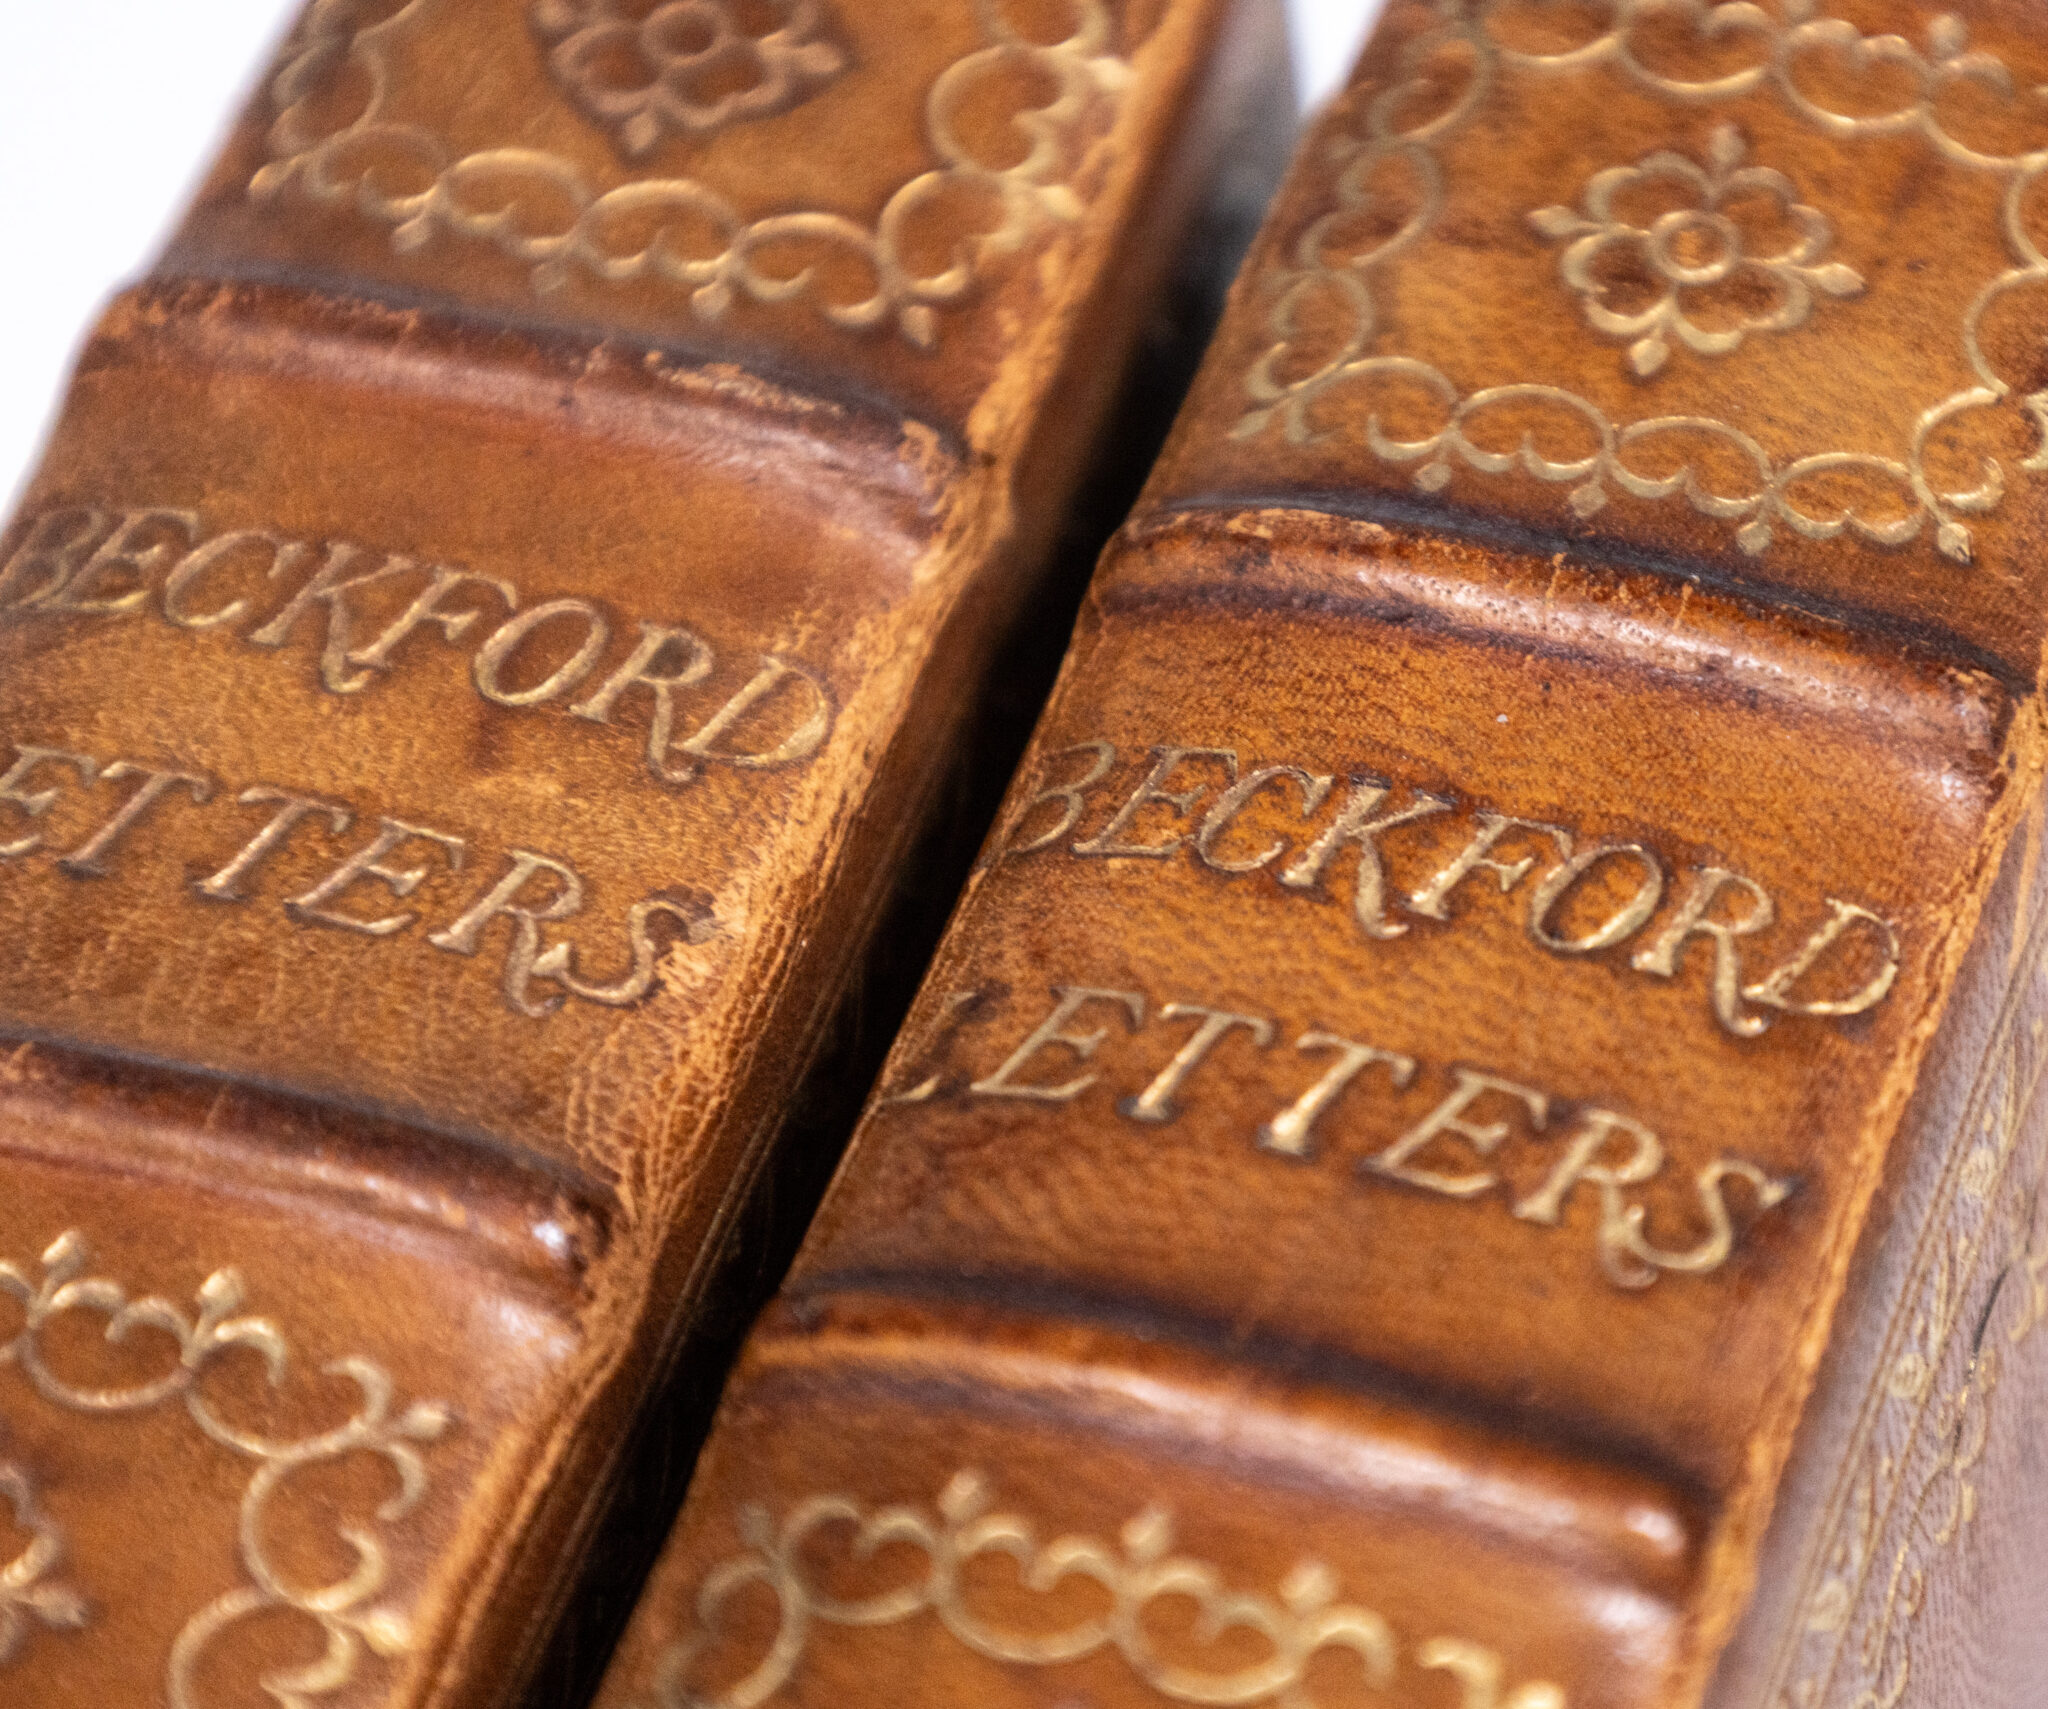 BECKFORD
LETTERS
BECKFORD
LETTERS